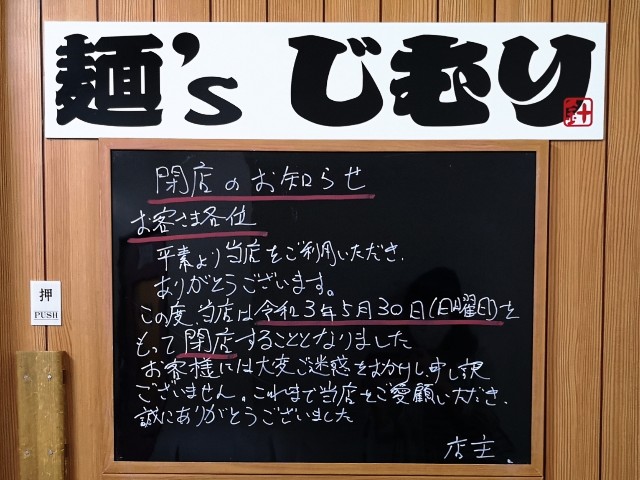 麺's じむり
閉店のお知らせ
お客さま各位
平素より当店をご利用いただき、
ありがとうございます。
この度、当店は令和3年5月30日(日曜日)を
もって閉店することとなりました
お客様には大変ご迷惑をおかけし申し訳
ございません。これまで当店をご愛顧いただき、
誠にありがとうございました
店主、
押
PUSH